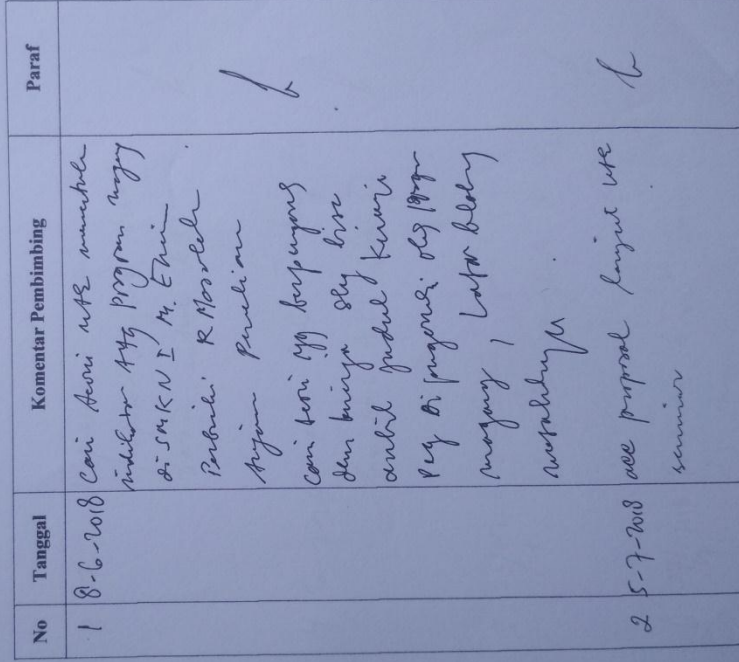 No Tanggal Komentar Pembimbing Paraf
1 8-6-2018 Cari teori utk menentukan
indikator ttg program magang
di SMKN I M. Enim
Perbaiki R Masalah
tujuan Penelitian
Cari teori yg
dem kinerja shg bisa
ambil judul kinerja
Peg di pengaruhi oleh
magang, Latar blakang
masalahnya
2 5-7-2018 acc proposal lanjut utk
seminar